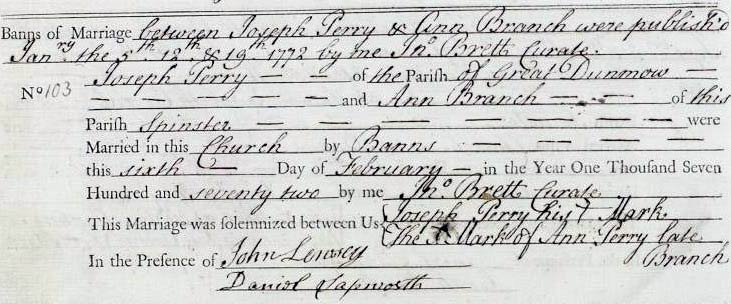 Banns of Marriage between Joseph Perry & Ann Branch were publish'd
Jan.ry the 5th 12th & 19th 1772 by me Jno Brett Curate.
No 103 Joseph Perry — — of the Parish of Great Dunmow —
— — — — — and Ann Branch — — of this
Parish Spinster — — — — — — — were
Married in this Church by Banns — — — —
this sixth — Day of February — in the Year One Thousand Seven
Hundred and seventy two by me Jno Brett Curate
This Marriage was solemnized between Us Joseph Perry his Mark
The X Mark of Ann Perry late
Branch
In the Presence of John
Daniel Tapworth